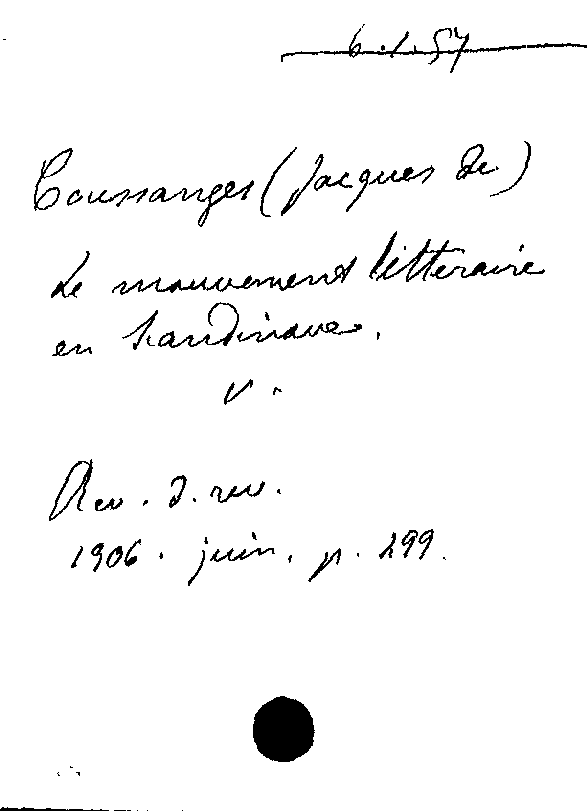 6.1.57
Coussanges (Jacques de)
Le mouvement littéraire
en Scandinavie.
V.
Rev. d. rev.
1906. juin. p. 299.